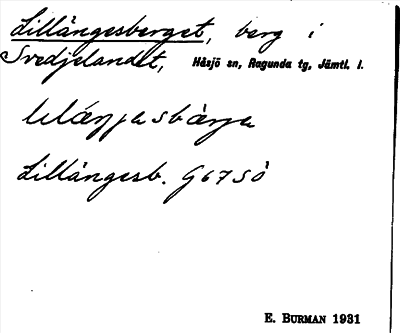 Lillängesberget, berg i
Svedjelandet, Håsjö sn, Ragunda tg, Jämtl. l.
Lillängesb. G67SÖ
E. BURMAN 1931